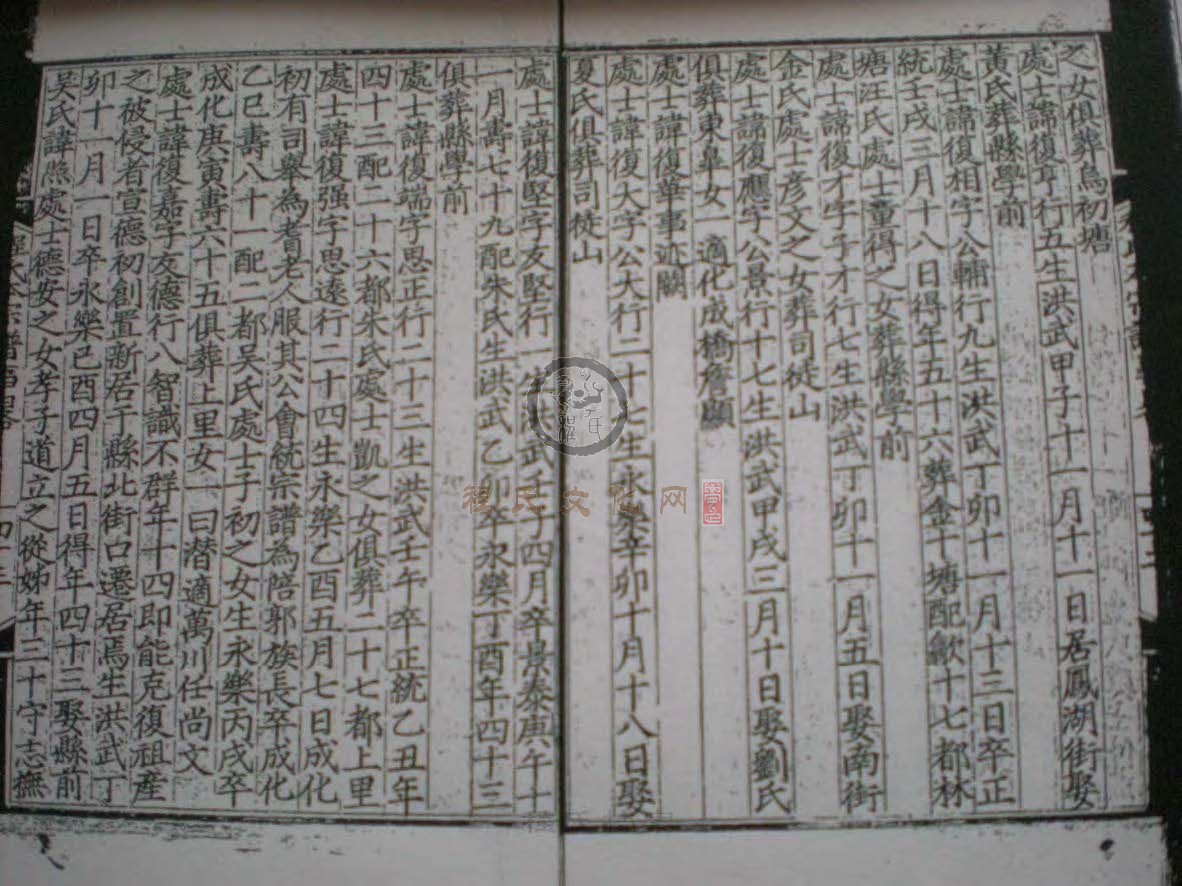 之女俱葬烏初塘
處士諱復亨行五生洪武甲子十一月十一日居鳳湖街娶
黃氏葬縣學前
處士諱復相字公輔行九生洪武丁卯十一月十三日卒正
統壬戌三月十八日得年五十六葬金干塘配歙十七都林
塘汪氏處士童得之女葬縣學前
處士諱復才字子才行七生洪武丁卯十一月五日娶南街
金氏處士彥文之女葬司徒山
處士諱復應字公景行十七生洪武甲戌三月十日娶劉氏
俱葬東臯女一適化成橋詹顯
處士諱復華事迹闕
處士諱復大字公大行二十七生永樂辛卯十月十八日娶
夏氏俱葬司徒山
處士諱復堅字友堅行一武壬子四月卒景泰庚午十
一月壽七十九配朱氏生洪武乙卯卒永樂丁酉年四十三
俱葬縣學前
處士諱復端字思正行二十三生洪武壬午卒正統乙丑年
四十三配二十六都朱氏處士凱之女俱葬二十七都上里
處士諱復强字思遠行二十四生永樂乙酉五月七日成化
初有司舉為耆老人服其公會統宗譜為陪郭族長卒成化
乙巳壽八十一配二都吳氏處士子初之女生永樂丙戌卒
成化庚寅壽六十五俱葬上里女一曰潜適萬川任尚文
處士諱復嘉字友德行八智識不群年十四即能克復祖產
之被侵者宣德初創置新居于縣北街口遷居焉生洪武丁
卯十一月一日卒永樂己酉四月五日得年四十三娶縣前
吴氏諱處士德安之女孝子道立之從姊年三十守志撫
移民文化网